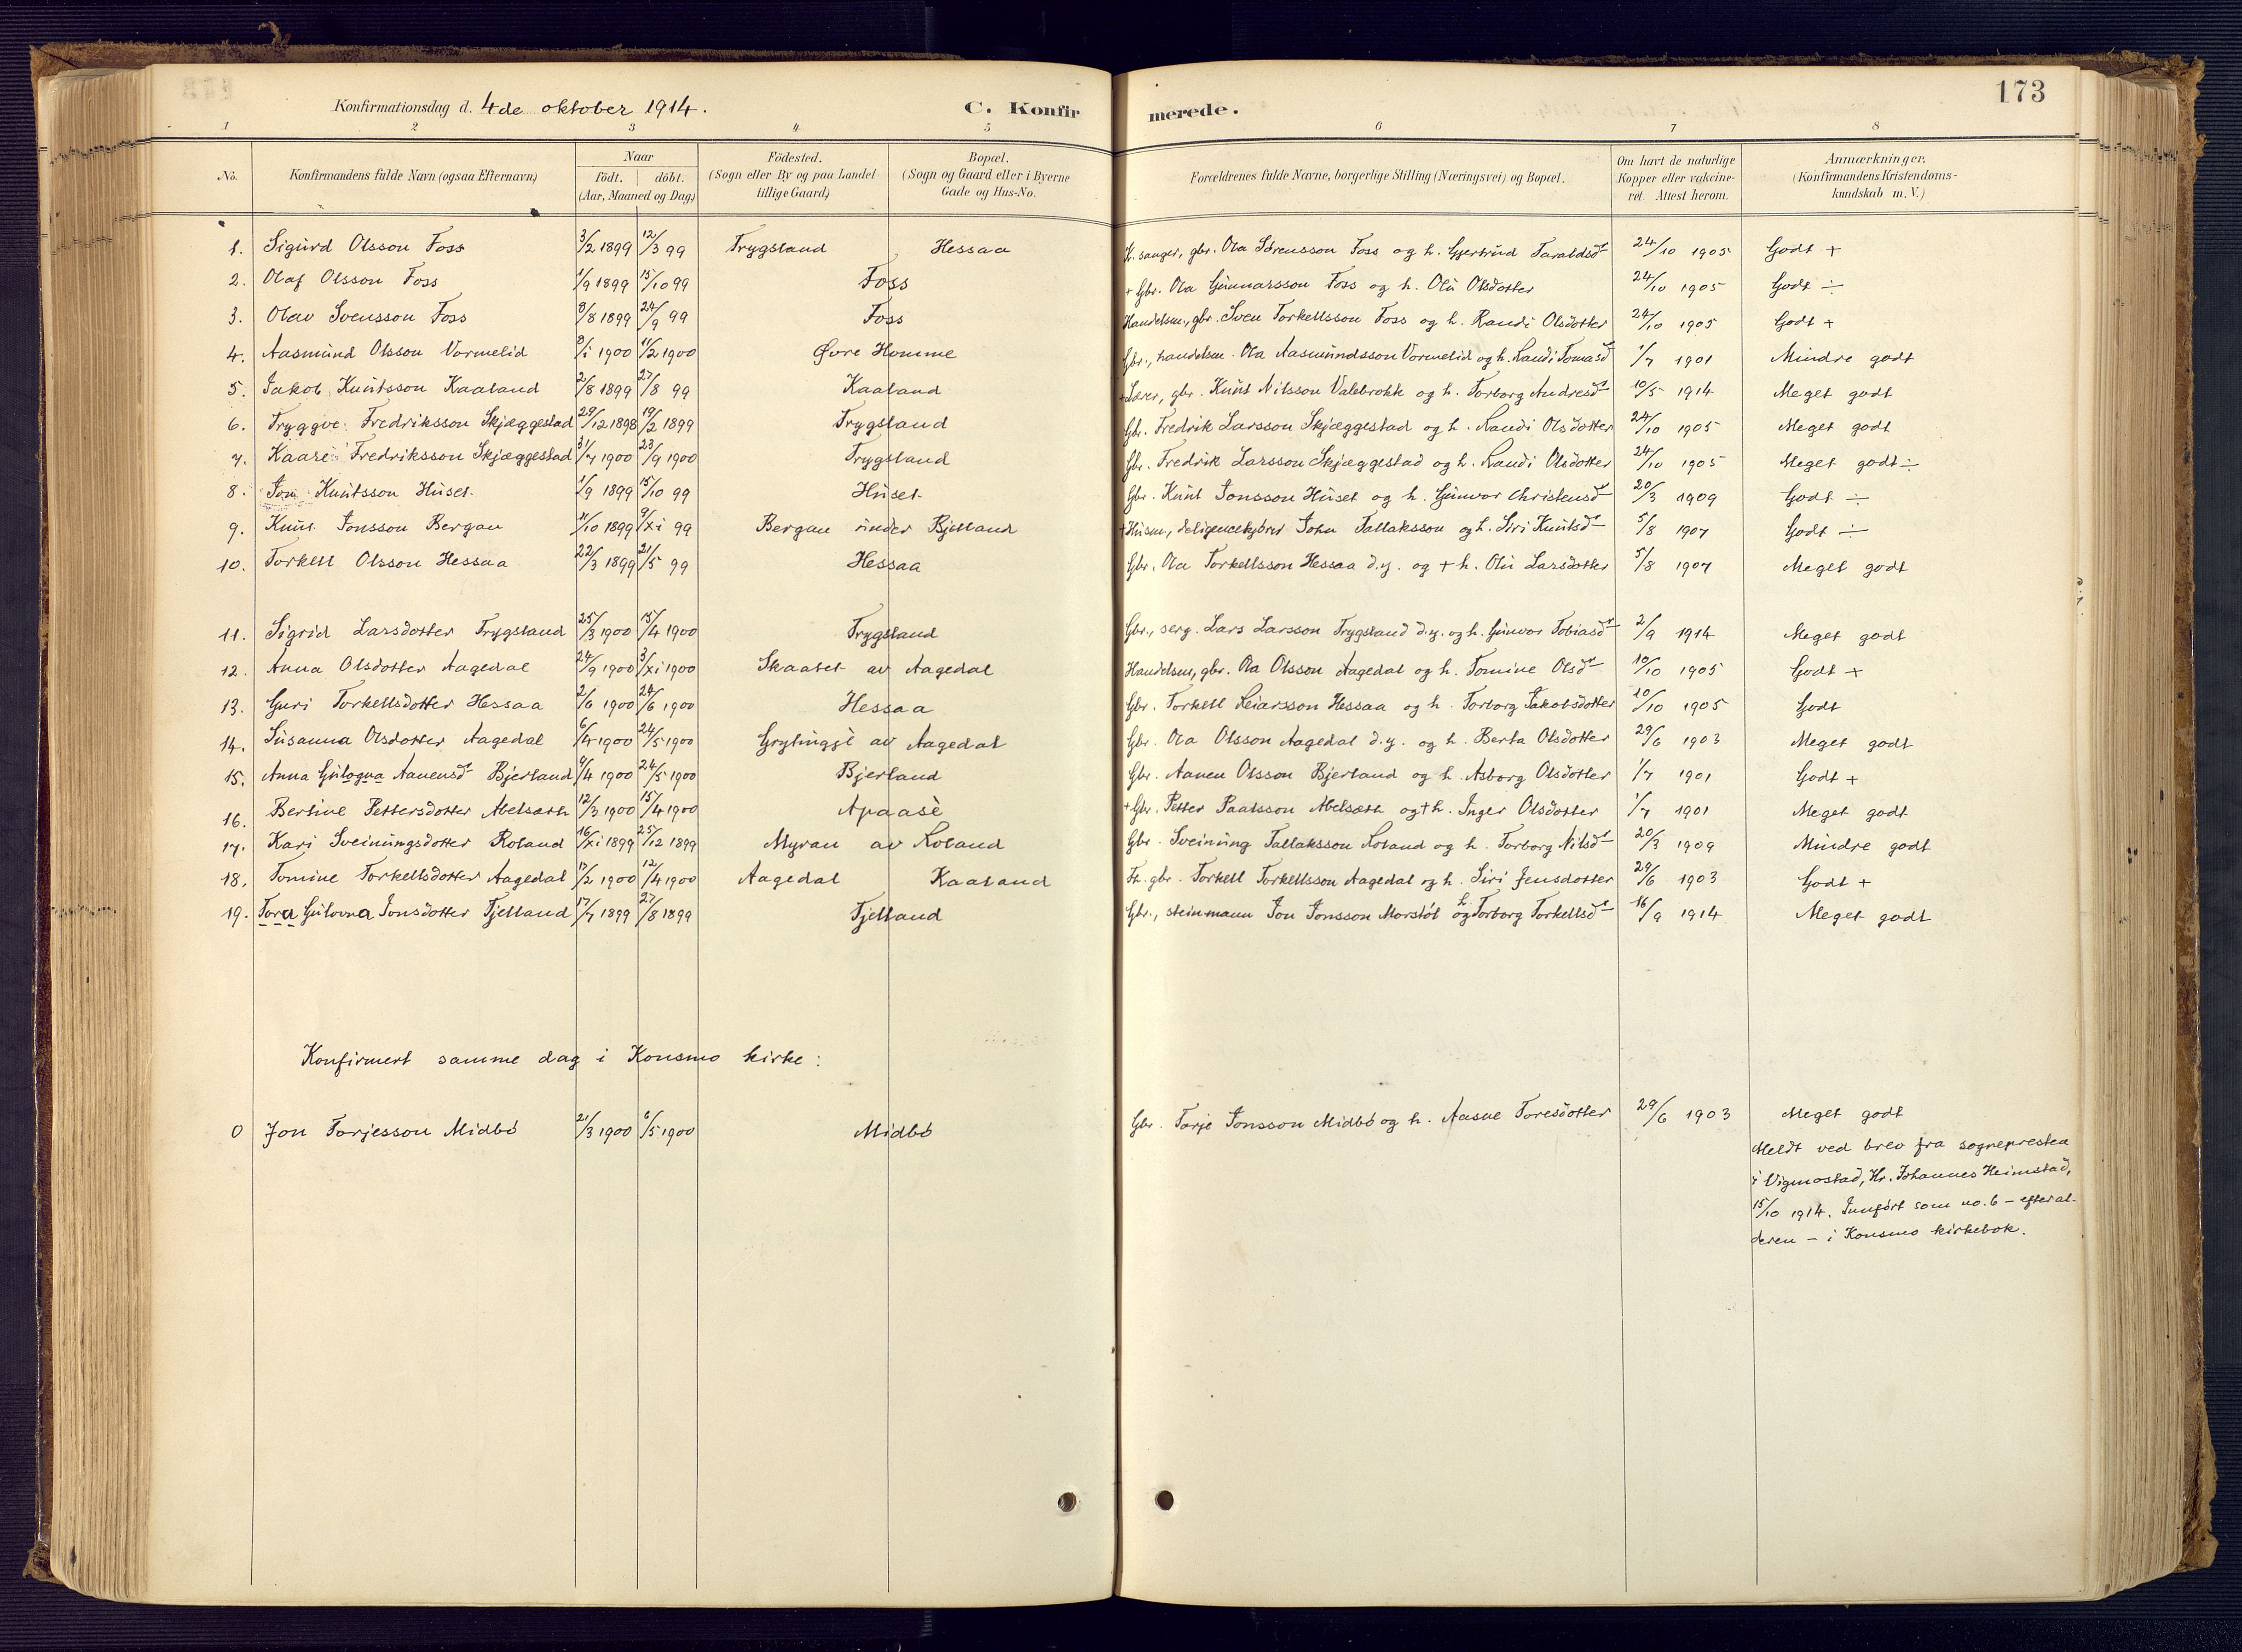 173
Konfirmationsdag d. 4de oktober 1914. C. Konfirmerede.
1 2 3 4 5 6 7 8
No. Konfirmandens fulde Navn (ogsaa Efternavn) Naar Födt. döbt. (Aar, Maaned og Dag) Födested. (Sogn eller By og paa Landet tillige Gaard) Bopæl. (Sogn og Gaard eller i Byerne Gade og Hus-No. Forældrenes fulde Navne, borgerlige Stilling (Næringsvei) og Bopæl. Om havt de naturlige Kopper eller vakcineret. Attest herom. Anmærkninger. (Konfirmandens Kristendomskundskab m. V.)
1. Sigurd Olsson Foss 3/2 1899 12/3 99 Trygsland Hessaa K. sanger, gbr. Ola Sørensson Foss og h. Gjertrud Taraldsdr 24/10 1905 Godt +
2. Olaf Olsson Foss 1/9 1899 15/10 99 Foss + Gbr. Ola Gunnarsson Foss og h. Olü Olsdotter 24/10 1905 Godt ÷
3. Olav Svensson Foss 8/8 1899 24/9 99 Foss Handelsm., gbr. Sven Torkellsson Foss og h. Randi Olsdotter 24/10 1905 Godt +
4. Aasmund Olsson Vormelid 8/1 1900 11/2 1900 Øvre Homme Gbr., handelsm. Ola Aasmundsson Vormelid og h. Randi Tomasdr 1/7 1901 Mindre godt
5. Jakob Knutsson Kaaland 2/8 1899 27/8 99 Kaaland + Lærer, gbr. Knut Nilsson Valebrokk og h. Torborg Andresdr 10/5 1914 Meget godt
6. Tryggve Fredriksson Skjæggestad 29/12 1898 19/2 1899 Trygsland Gbr. Fredrik Larsson Skjæggestad og h. Randi Olsdotter 24/10 1905 Meget godt
7. Kaare Fredriksson Skjæggestad 31/7 1900 23/9 1900 Trygsland Gbr. Fredrik Larsson Skjæggestad og h. Randi Olsdotter 24/10 1905 Meget godt ÷
8. Jon Knutsson Huset 1/9 1899 15/10 99 Huset Gbr. Knut Jonsson Huset og h. Gunvor Christensdr 20/3 1909 Godt ÷
9. Knut Jonsson Bergan 11/10 1899 9/xi 99 Bergan under Bjelland + Husm., deligencekjører John Tallaksson og h. Siri Knutsdr 5/8 1907 Godt ÷
10. Torkell Olsson Hessaa 22/3 1899 21/5 99 Hessaa Gbr. Ola Torkellsson Hessaa d.y. og + h. Olü Larsdotter 5/8 1907 Meget godt
11. Sigrid Larsdotter Trygsland 25/3 1900 15/4 1900 Trygsland Gbr., serg. Lars Larsson Trygsland d.y. og h. Gunvor Tobiasdr 2/9 1914 Meget godt
12. Anna Olsdotter Aagedal 24/9 1900 3/xi 1900 Skaatet av Aagedal Handelsm, gbr. Ola Olsson Aagedal og h. Tomine Olsdr 10/10 1905 Godt +
13. Guri Torkellsdotter Hessaa 2/6 1900 24/6 1900 Hessaa Gbr. Torkell Reiarsson Hessaa og h. Torborg Jakobsdotter 10/10 1905 Godt
14. Susanna Olsdotter Aagedal 6/4 1900 24/5 1900 av Aagedal Gbr. Ola Olsson Aagedal d.y. og h. Berta Olsdotter 29/6 1903 Meget godt
15. Anna Gulogna Aanensdr Bjerland 9/4 1900 24/5 1900 Bjerland Gbr. Aanen Olsson Bjerland og h. Asborg Olsdotter 1/7 1901 Godt +
16. Bertine Pettersdotter Abelsæth 12/3 1900 15/4 1900 Apaasè + Gbr. Petter Paalsson Abelsæth og + h. Inger Olsdotter 1/7 1901 Meget godt
17. Kari Sveinungsdotter Roland 16/xi 1899 25/12 1899 Myran av Roland Gbr. Sveinung Tallaksson Roland og h. Torborg Nilsdr 20/3 1909 Mindre godt
18. Tomine Torkellsdotter Aagedal 17/2 1900 12/4 1900 Aagedal Kaaland Fr. gbr. Torkell Torkellsson Aagedal og h. Siri Jensdotter 29/6 1903 Godt +
19. Tora Gulovna Jonsdotter Fjelland 17/7 1899 27/8 1899 Fjelland Gbr., steinmann Jon Jonsson Monstöl og h. Torborg Torkellsdr 16/9 1914 Meget godt
Konfirmert samme dag i Konsmo kirke:
0 Jon Torjesson Midbö 21/3 1900 6/5 1900 Midbö Gbr. Torje Jonsson Midbö og h. Aasne Toresdotter 29/6 1903 Meget godt
Meldt ved brev fra sognepresten
i Vigmostad, Hr. Johannes Heimstad,
15/10 1914. Innfört som no. 6 – efter al-
deren – i Konsmo kirkebok.